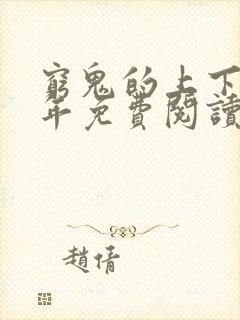 窮鬼的上下
年免費閱讀
趙倩